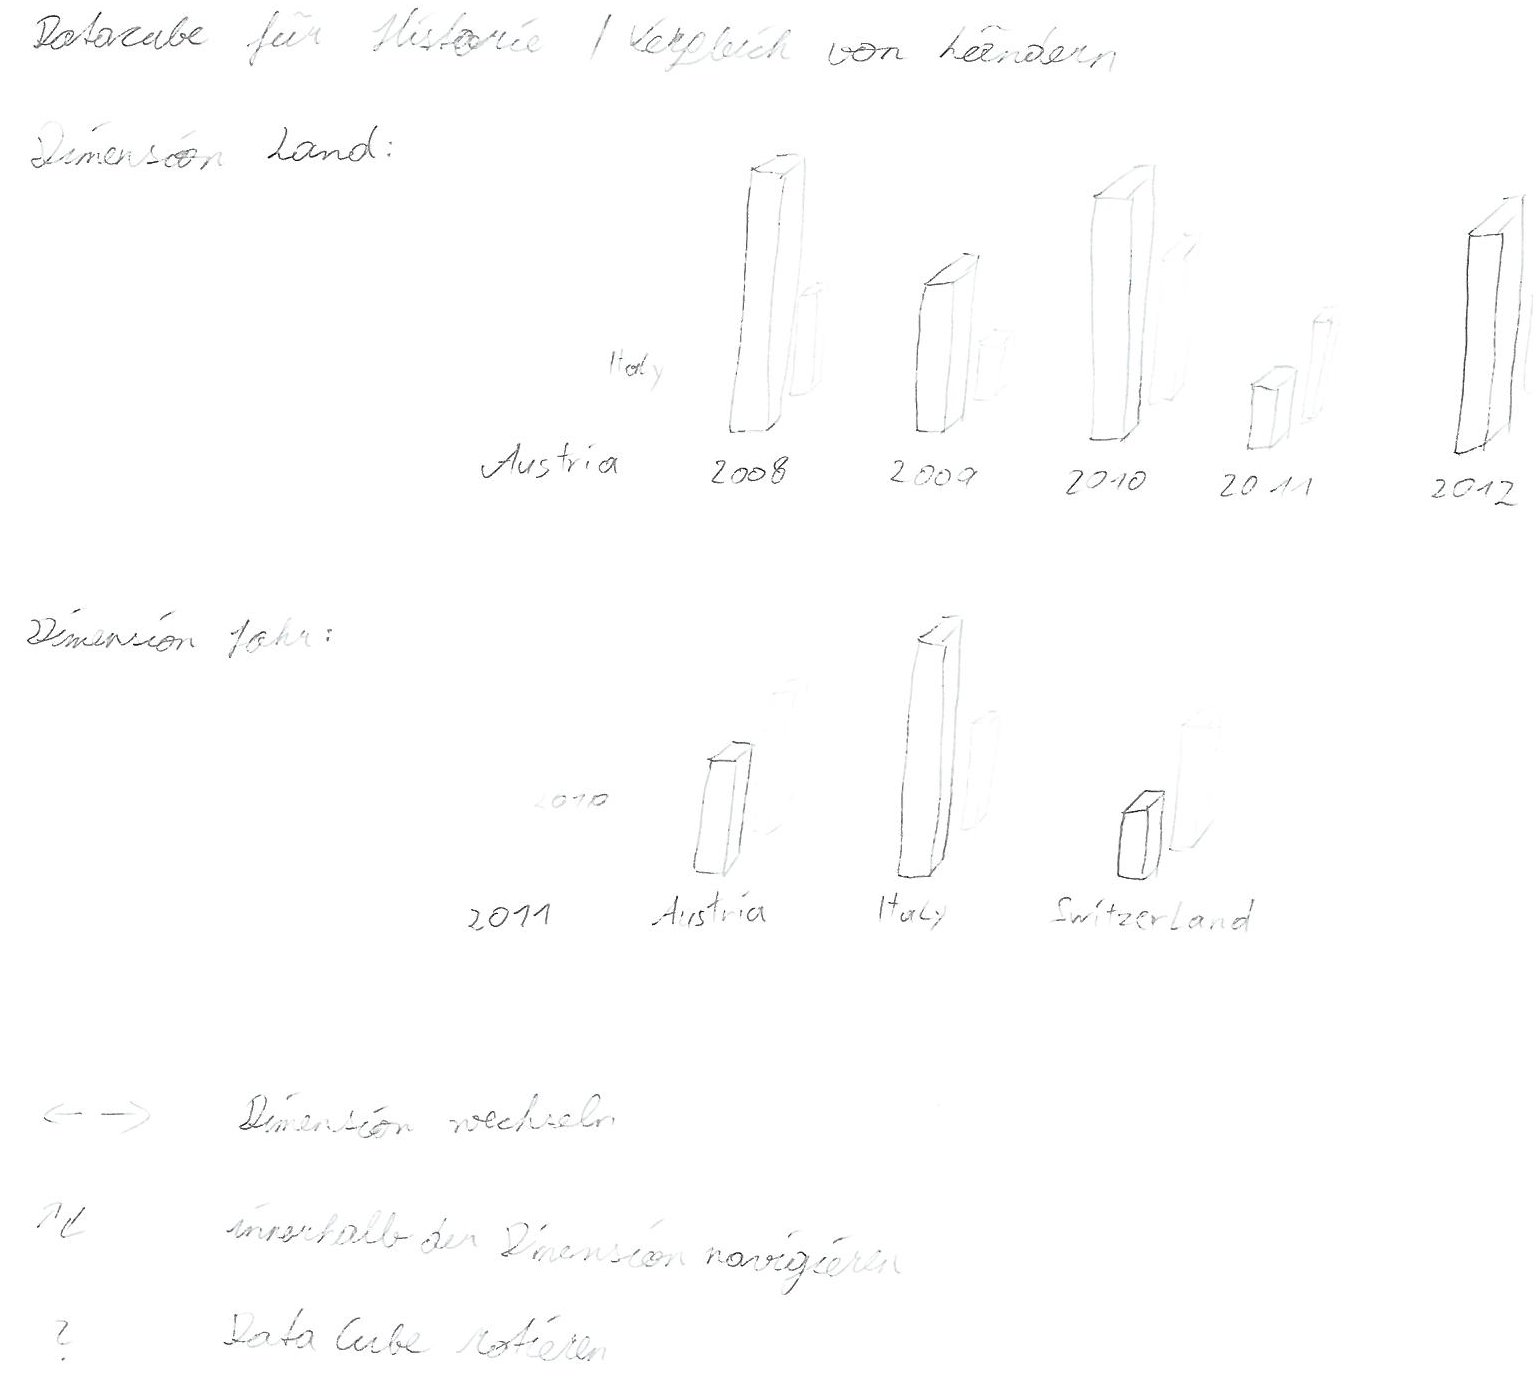 Datacube für Historie / Vergleich von Ländern
Dimension Land:
Italy
Austria 2008 2009 2010 2011 2012
Dimension Jahr:
2010
2011 Austria Italy Switzerland
← → Dimension wechseln
↑↓ innerhalb der Dimension navigieren
? Data Cube rotieren